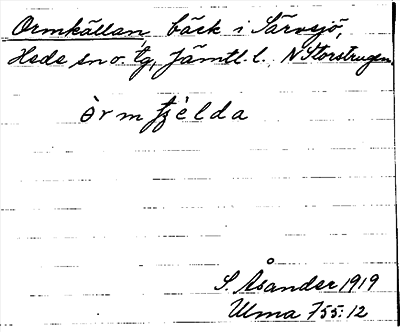 Ormkällan, bäck i Särvsjö,
Hede sn o. tg, Jämtl. l. N Storstrugen.
òrmʃèlda
S. Åsander 1919
Ulma 755:12